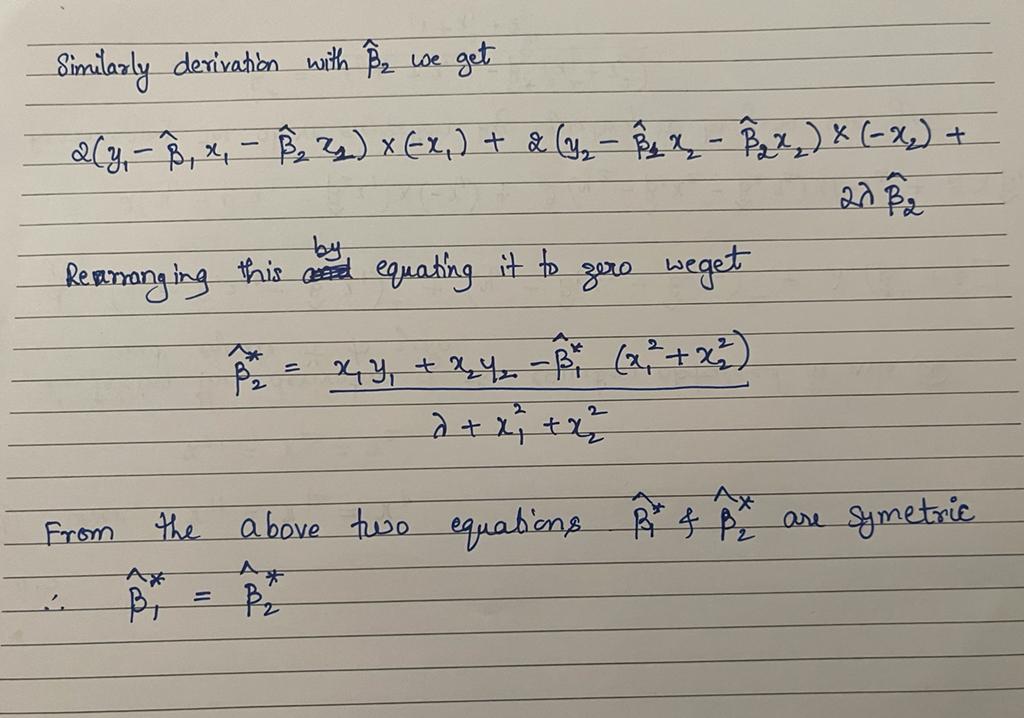 Similarly derivation with β̂₂ we get
2(y₁ - β̂₁ x₁ - β̂₂ x₁) × (-x₁) + 2 (y₂ - β̂₁ x₂ - β̂₂ x₂) × (-x₂) +
2λ β̂₂
by
Rearranging this equating it to zero weget
β̂₂* = x₁ y₁ + x₂ y₂ - β̂₁* (x₁² + x₂²)
λ + x₁² + x₂²
From the above two equations β̂₁* & β̂₂* are symetric
∴ β̂₁* = β̂₂*